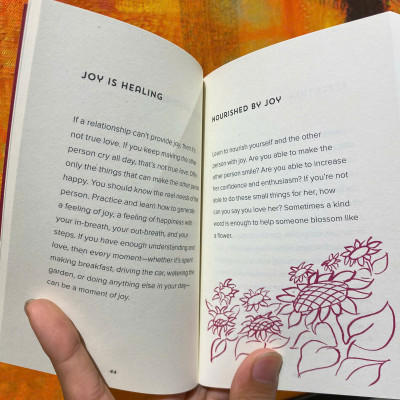 JOY IS HEALING
If a relationship can't provide joy, then it's
not true love. If you keep making the other
person cry all day, that's not true love. Offer
only the things that can make the other person
happy. You should know the real needs of the
person. Practice and learn how to generate
a feeling of joy, a feeling of happiness with
your in-breath, your out-breath, and your
steps. If you have enough understanding and
love, then every moment—whether it's spent
making breakfast, driving the car, watering the
garden, or doing anything else in your day—
can be a moment of joy.
44
NOURISHED BY JOY
Learn to nourish yourself and the other
person with joy. Are you able to make the
other person smile? Are you able to increase
her confidence and enthusiasm? If you're not
able to do these small things for her, how
can you say you love her? Sometimes a kind
word is enough to help someone blossom like
a flower.